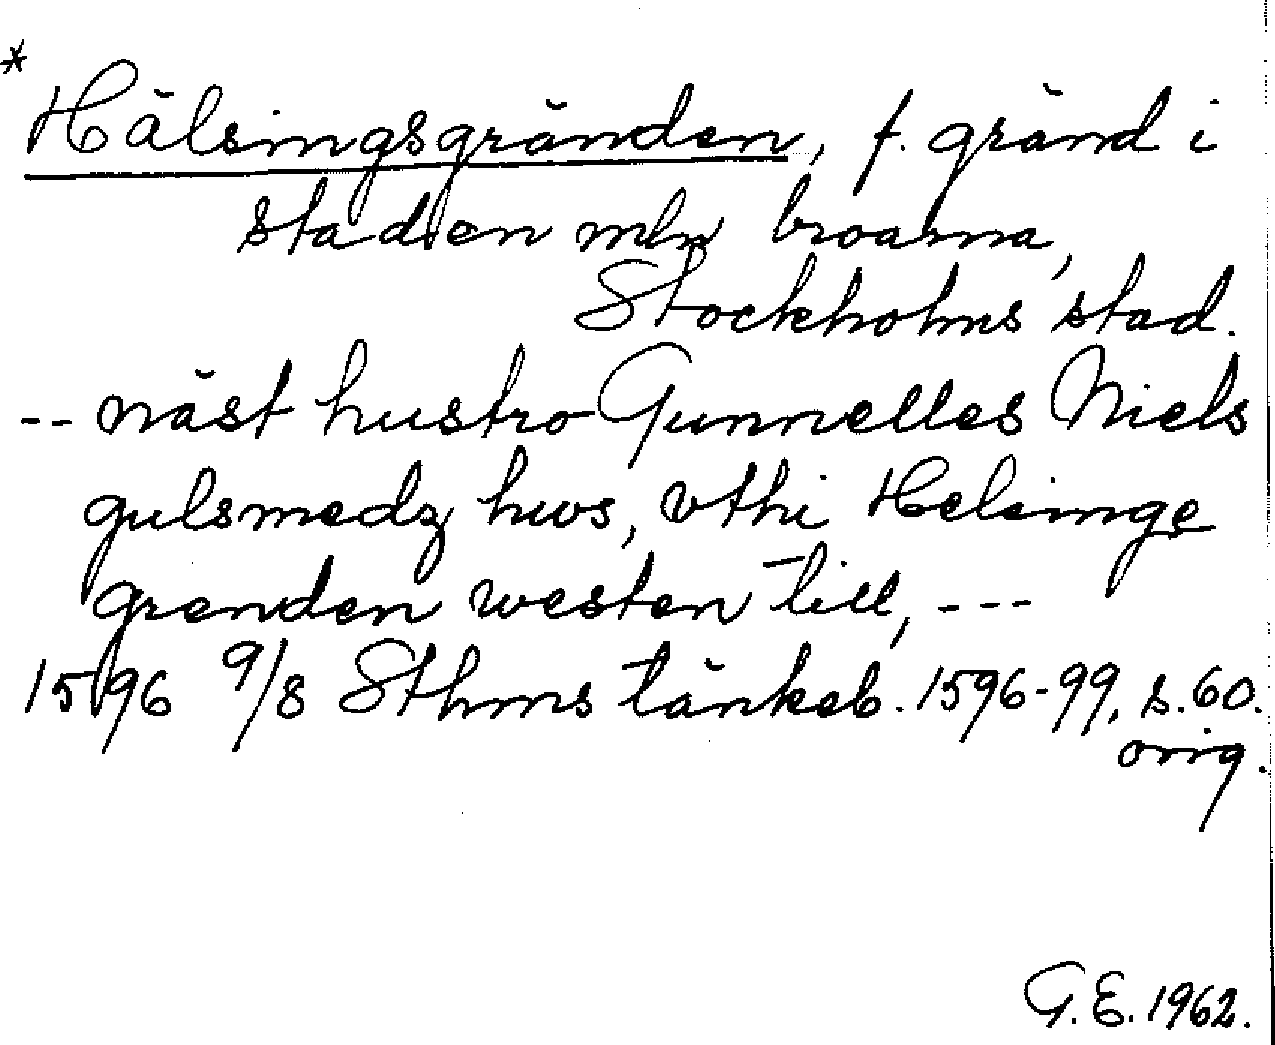 * Hälsingsgränden, f. gränd i
staden mln broarna,
Stockholms stad.
-- näst hustro Gunnelles Niels
gulsmedz hws, vthi Helsinge
grenden westen till, ---
1596 9/8 Sthms tänkeb. 1596-99, s. 60.
orig.
G. E. 1962.